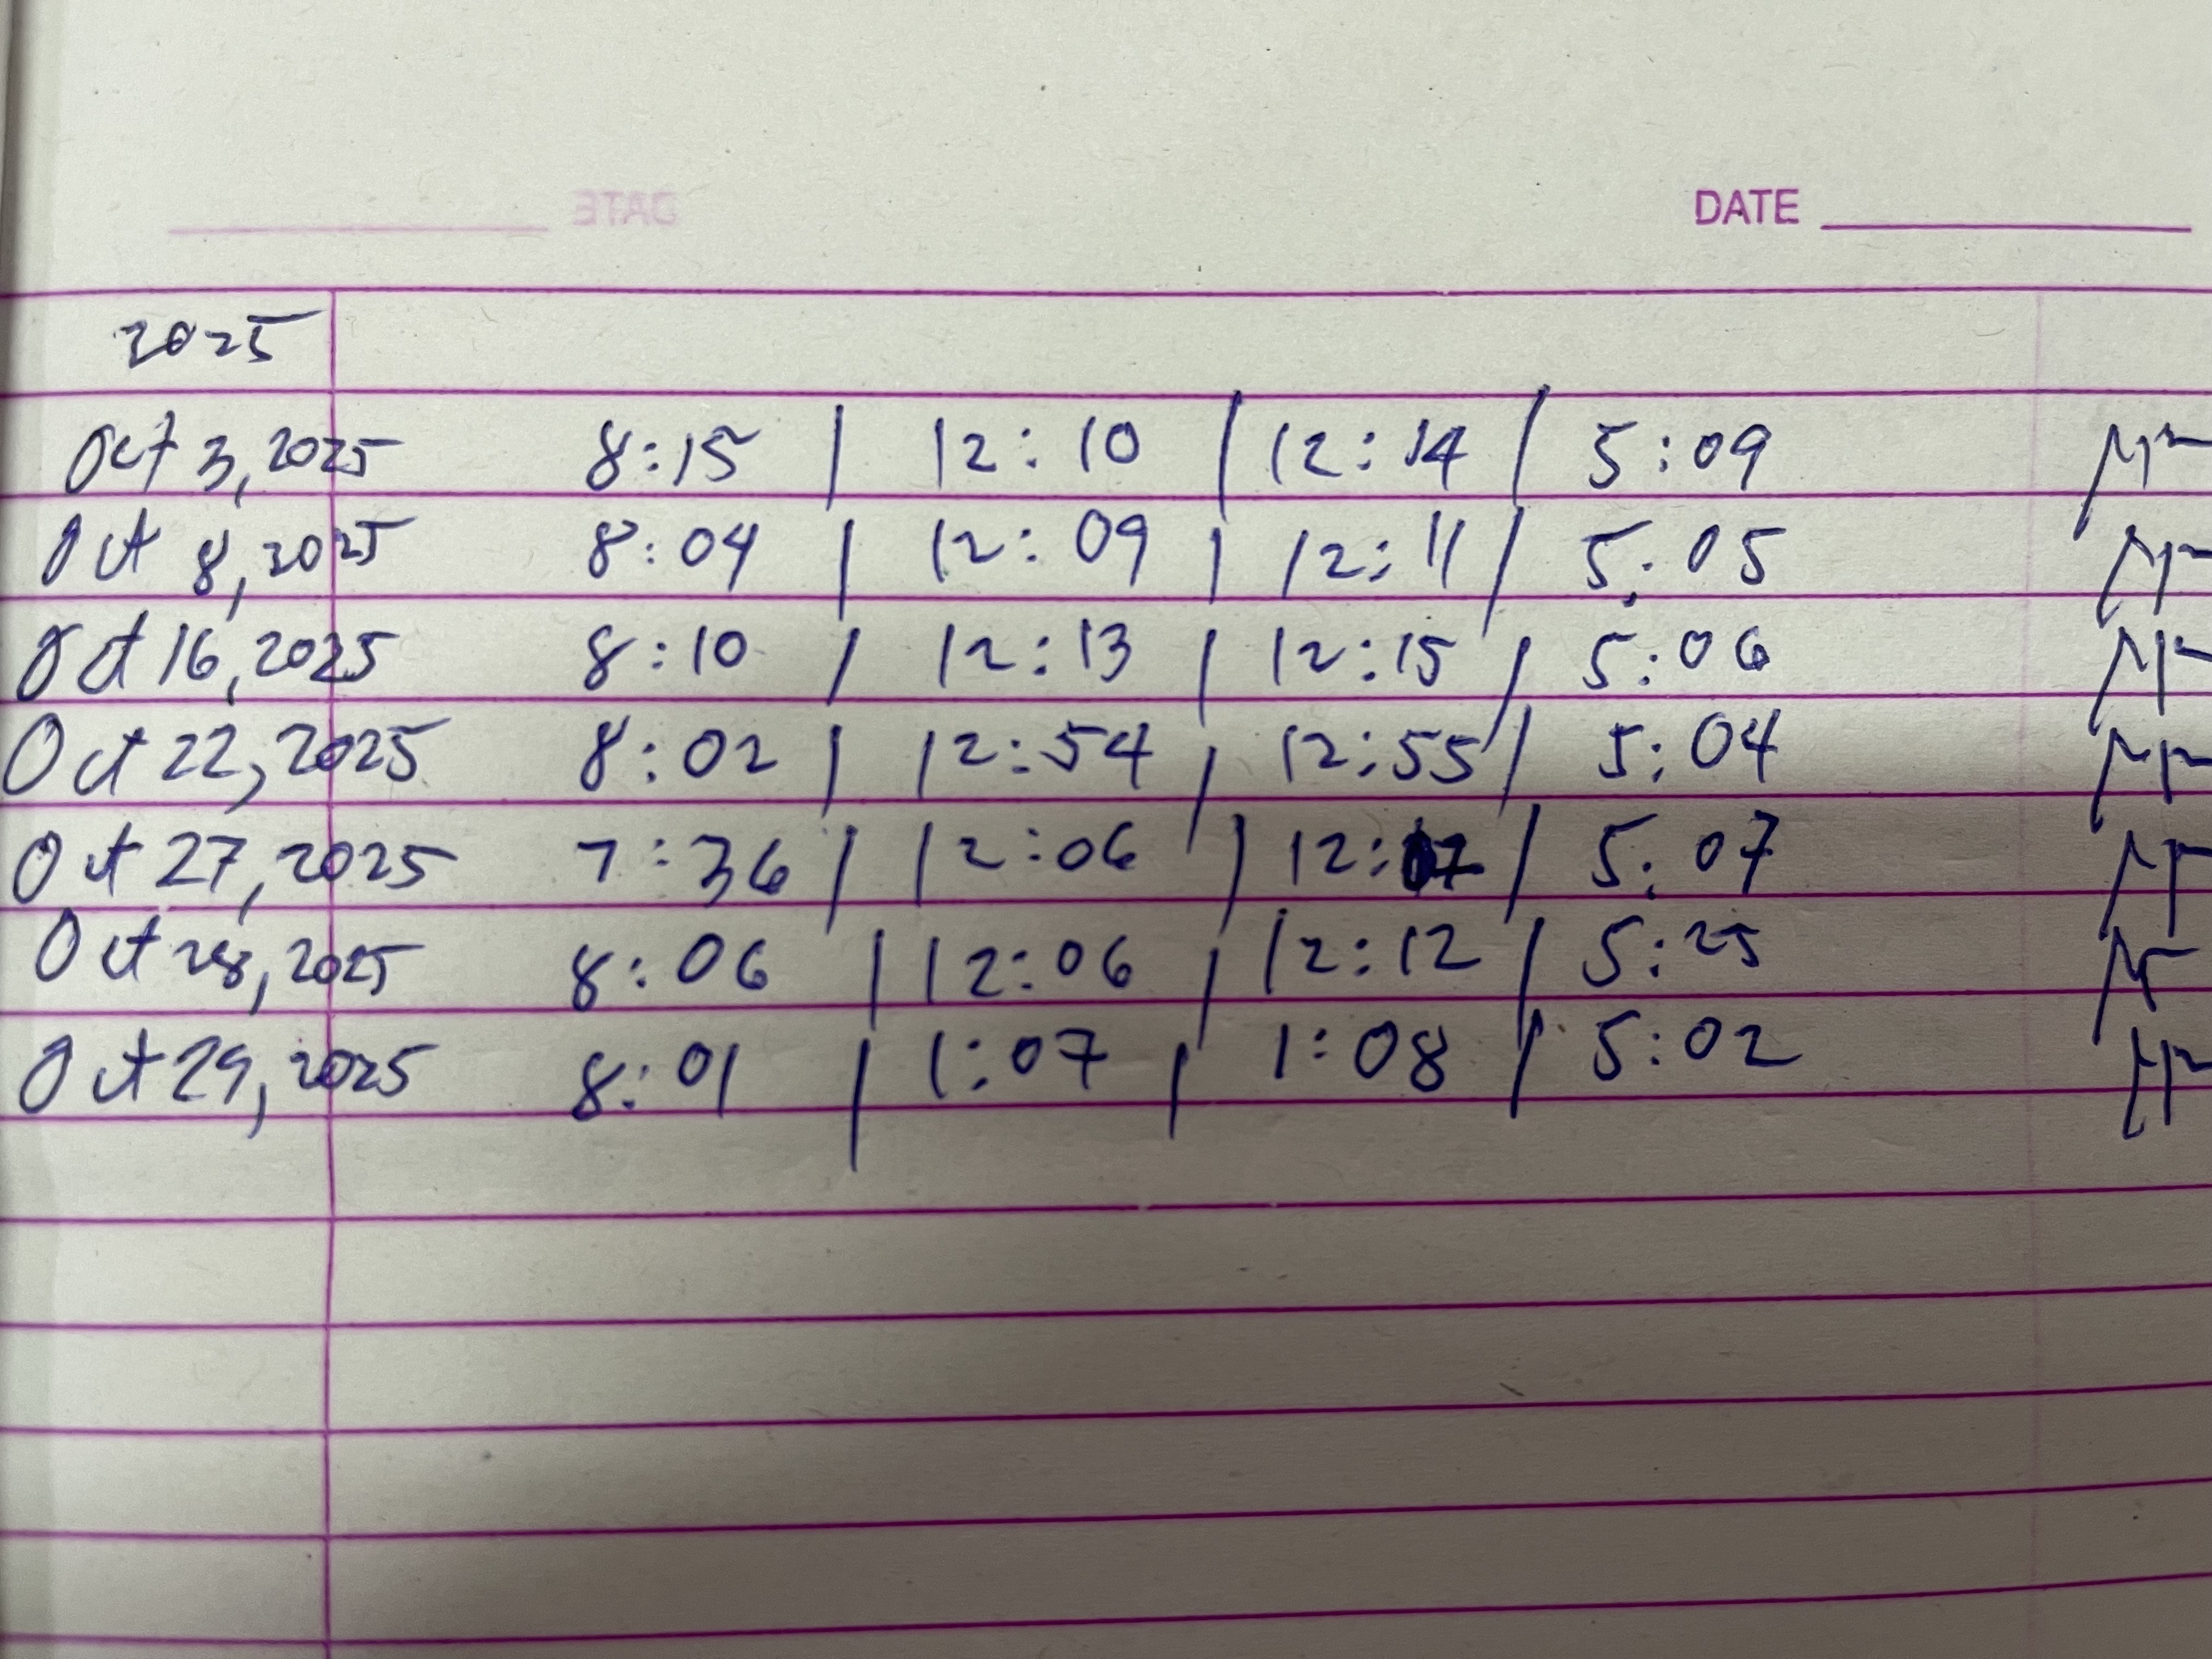 DATE
2025
Oct 3, 2025 8:15 | 12:10 | 12:14 | 5:09
Oct 8, 2025 8:04 | 12:09 | 12:11 | 5:05
Oct 16, 2025 8:10 | 12:13 | 12:15 | 5:06
Oct 22, 2025 8:02 | 12:54 | 12:55 | 5:04
Oct 27, 2025 7:36 | 12:06 | | 5:07
Oct 28, 2025 8:06 | 12:06 | 12:12 | 5:25
Oct 29, 2025 8:01 | 1:07 | 1:08 | 5:02